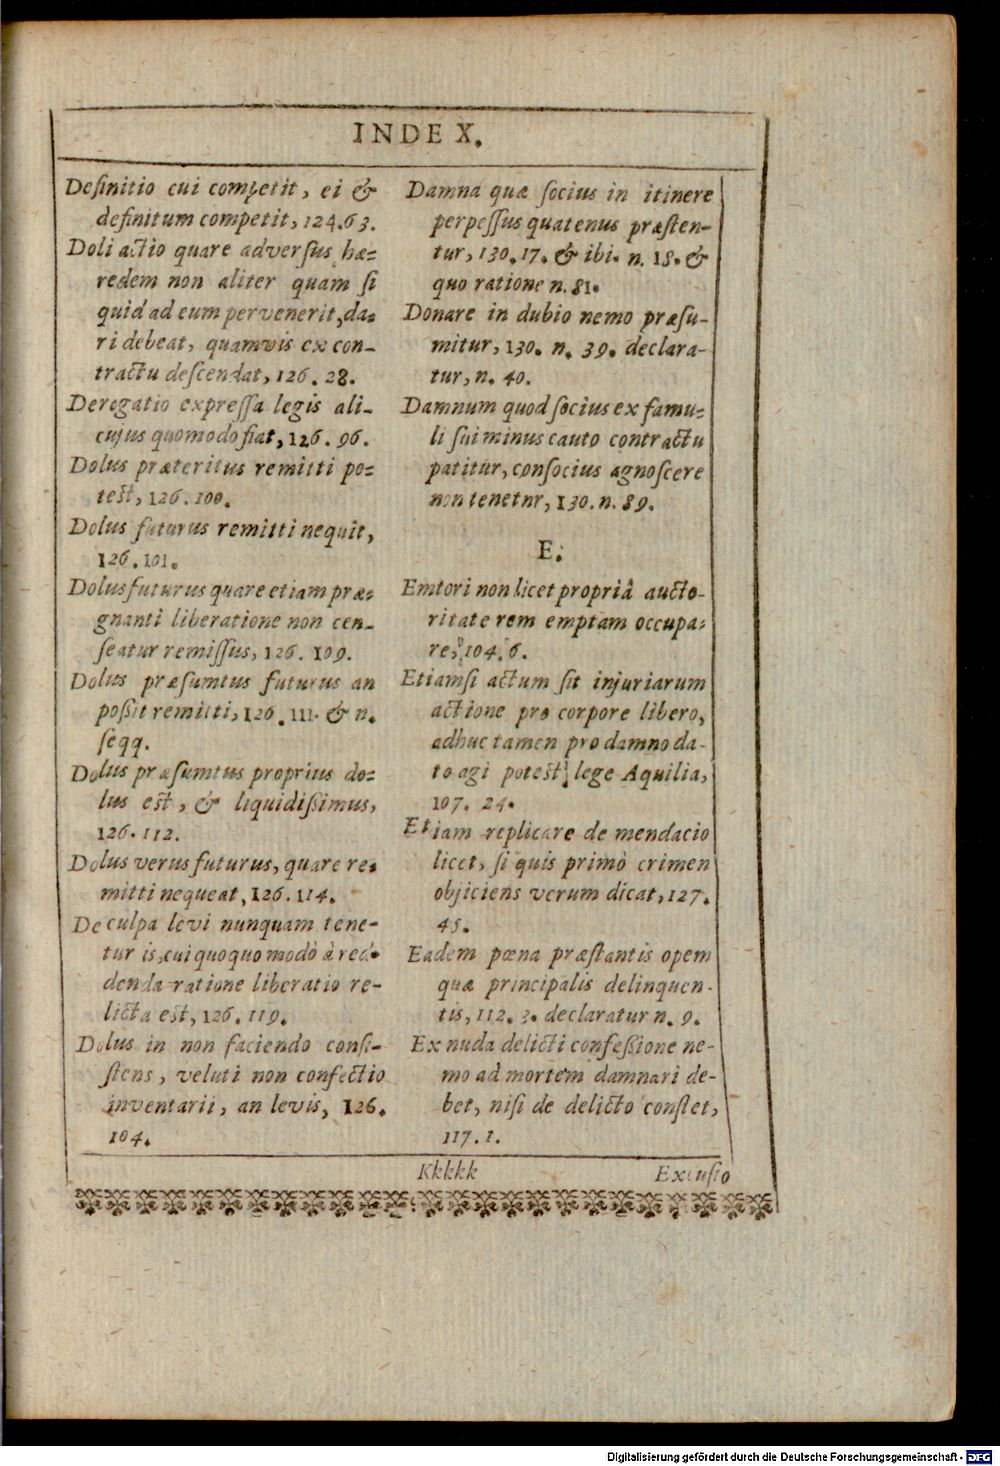 INDEX.
Definitio cui competit, ei &
definitum competit, 124.63.
Doli actio quare adversus hæ=
redem non aliter quam si
quid ad eum pervenerit, da=
ri debeat, quamvis ex con-
tractu descendat, 126. 28.
Deregatio expressa legis ali-
cujus quomodo fiat, 126. 96.
Dolus præteritus remitti po=
test, 126. 100.
Dolus futurus remitti nequit,
126. 101.
Dolus futurus quare etiam præ=
gnanti liberatione non cen-
seatur remissus, 126. 109.
Dolus præsumtus futurus an
possit remitti, 126. 111. & n.
seqq.
Dolus præsumtus proprius do=
lus est, & liquidissimus,
126. 112.
Dolus verus futurus, quare re=
mitti nequeat, 126. 114.
De culpa levi nunquam tene-
tur is, cui quoquo modò à red=
denda ratione liberatio re-
licta est, 126. 119.
Dolus in non faciendo consi-
stens, veluti non confectio
inventarii, an levis, 126.
104.
Damna quæ socius in itinere
perpessus quatenus præsten-
tur, 130. 17. & ibi. n. 18. &
quo ratione n. 81.
Donare in dubio nemo præsu-
mitur, 130. n. 39. declara-
tur, n. 40.
Damnum quod socius ex famu=
li sui minus cauto contractu
patitur, consocius agnoscere
non tenetnr, 130. n. 89.
E.
Emtori non licet propriâ aucto-
ritate rem emptam occupa=
re, 104. 6.
Etiamsi actum sit injuriarum
actione pro corpore libero,
adhuc tamen pro damno da-
to agi potest lege Aquilia,
107. 24.
Etiam replicare de mendacio
licet, si quis primò crimen
objiciens verum dicat, 127.
45.
Eadem pœna præstantis opem
quæ principalis delinquen-
tis, 112. 3. declaratur n. 9.
Ex nuda delicti confessione ne-
mo ad mortem damnari de-
bet, nisi de delicto constet,
117. 1.
Kkkkk
Excusio
Digitalisierung gefördert durch die Deutsche Forschungsgemeinschaft - DFG